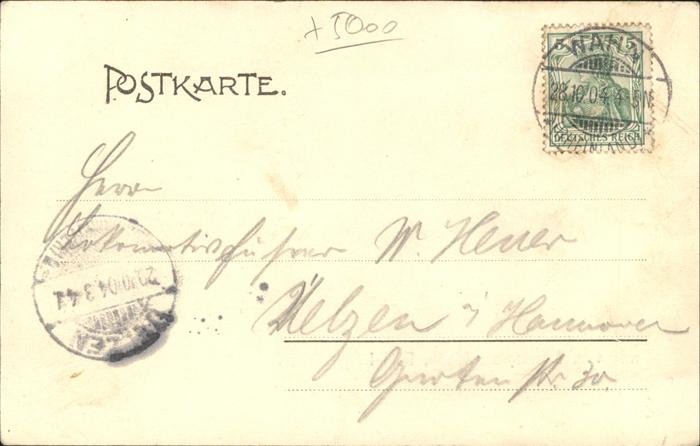 + 5000
POSTKARTE.
5 5
DEUTSCHES REICH
28.10.04.4-5N.
Herrn
Lokomotivführer W. Heuer
Uelzen i/ Hannover
Garten str. 30.
29.10.04.3-4
UELZEN